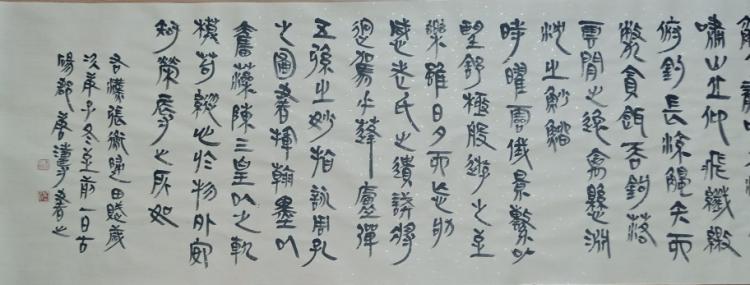 嘯山丘仰飛纖繳
俯釣長流觸矢而
斃貪餌吞鉤落
雲間之逸禽懸淵
沈之魦鰡
時曜靈俄景繫以
望舒極般遊之至
樂雖日夕而忘劬
感老氏之遺誡將
迴駕乎蓬廬彈
五絃之妙指詠周孔
之圖書揮翰墨以
奮藻陳三皇以之軌
模苟縱心於物外安
知榮辱之所如
右漢張衡歸田賦歲
次庚子冬至前一日古
書之